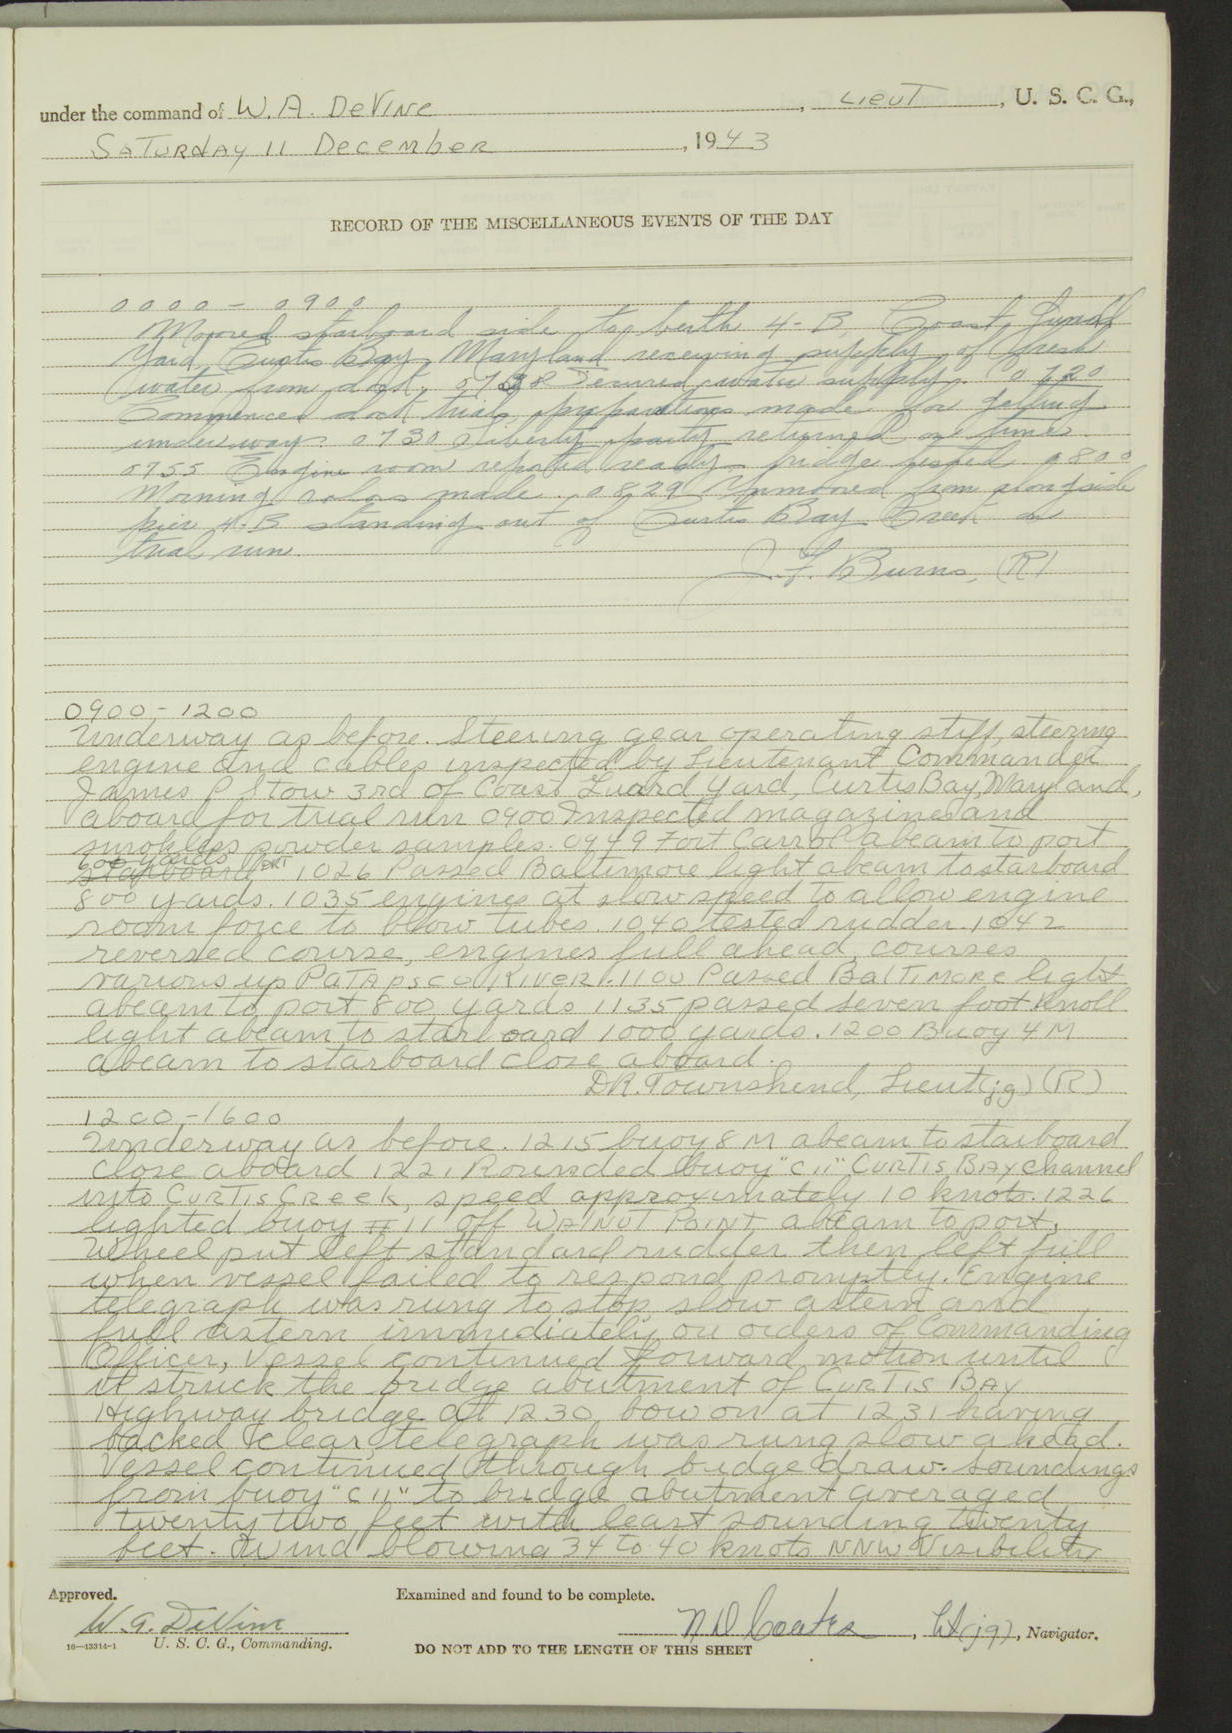 under the command of W. A. DeVine, Lieut, U. S. C. G.,
Saturday 11 December, 1943
RECORD OF THE MISCELLANEOUS EVENTS OF THE DAY
0000 - 0900
Moored starboard side to berth 4-B, Coast Guard
Yard, Curtis Bay, Maryland receiving supply of fresh
water from dock. Secured water supply. 0720
Commenced dock trials, preparations made for getting
underway. 0730 Liberty party returned on time.
0755 Engine room reported ready - bridge tested 0800
Morning colors made. 0829 Unmoored from alongside
pier 4-B standing out of Curtis Bay Creek on
trial run.
J. F. Burns, (R)
0900 - 1200
Underway as before. Steering gear operating stiff, steering
engine and cables inspected by Lieutenant Commander
James P Stow 3rd of Coast Guard Yard, Curtis Bay, Maryland,
aboard for trial run 0900 Inspected magazines and
smokeless powder samples. 0949 Fort Carrol abeam to port
600 yards
starboard DRT 1026 Passed Baltimore light abeam to starboard
800 yards. 1035 engines at slow speed to allow engine
room force to blow tubes. 1040 tested rudder. 1042
reversed course, engines full ahead, courses
various up PATAPSCO RIVER. 1100 Passed BALTIMORE light
abeam to port 800 yards 1135 passed seven foot Knoll
light abeam to starboard 1000 yards. 1200 Buoy 4M
abeam to starboard close aboard.
DR. Townshend, Lieut(jg) (R)
1200 - 1600
Underway as before. 1215 buoy 8M abeam to starboard
close aboard 1221 Rounded buoy "C11" CURTIS BAY channel
into CURTIS CREEK, speed approximately 10 knots. 1226
lighted buoy #11 off WALNUT POINT abeam to port.
Wheel put left standard rudder then left full
when vessel failed to respond promptly. Engine
telegraph was rung to stop, slow astern and
full astern immediately on orders of Commanding
Officer, Vessel continued forward motion until
it struck the bridge abutment of CURTIS BAY
Highway bridge at 1230 bow on at 1231 having
backed clear, telegraph was rung slow ahead.
Vessel continued through bridge draw. Soundings
from buoy "C11" to bridge abutment averaged
twenty two feet with least sounding twenty
feet. Wind blowing 34 to 40 knots NNW Visibility
Approved.
Examined and found to be complete.
W. A. DeVine
U. S. C. G., Commanding.
N D Coates, Lt (jg), Navigator.
16-13314-1
DO NOT ADD TO THE LENGTH OF THIS SHEET